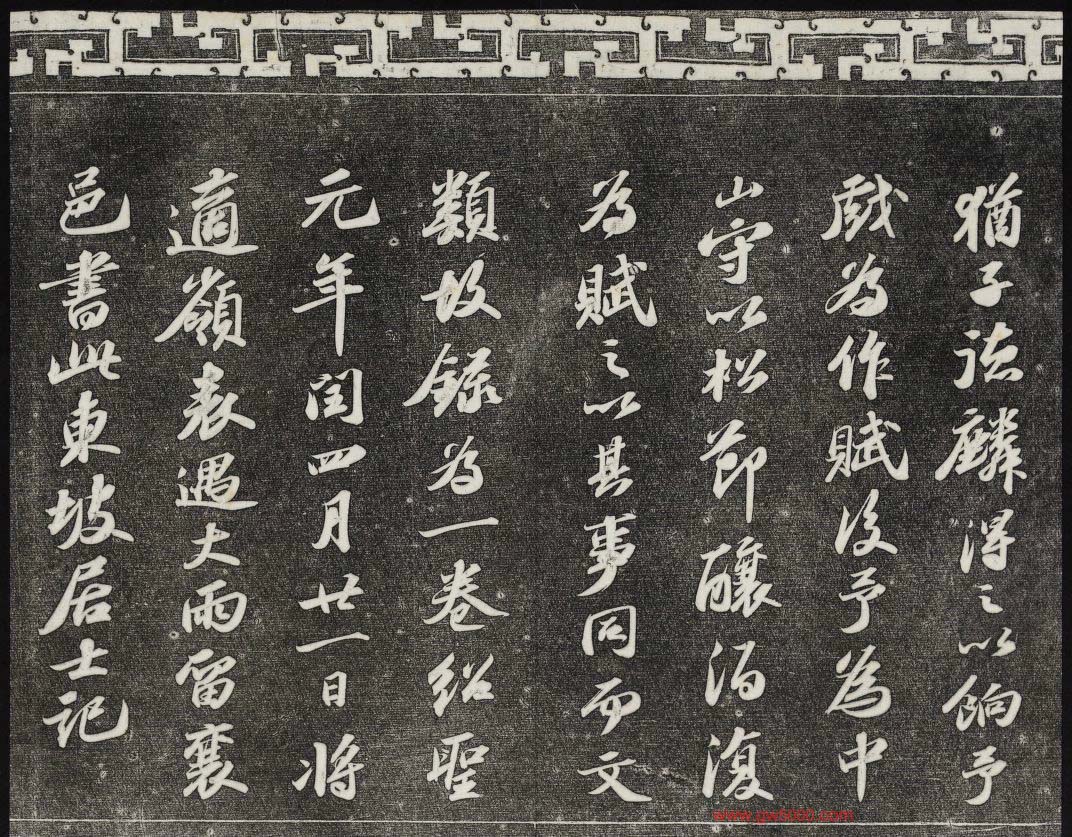 猶子德麟得之以餉予
戲為作賦後予為中
山守以松節釀酒復
為賦之以其事同而文
類故録為一卷紹聖
元年閏四月廿一日將
適嶺表遇大雨留襄
邑書此東坡居士記